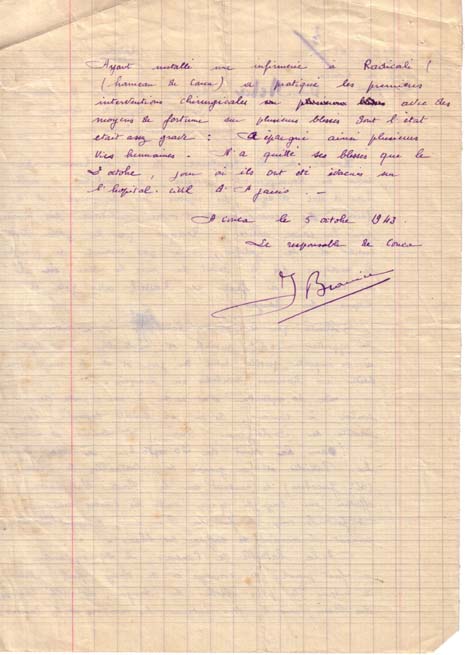 Ayant installé une infirmerie a Radicali !
(hameau de Conca) a pratiqué les premières
interventions chirurgicales avec des
moyens de fortune sur plusieurs blessés dont l'état
etait assez grave : A épargné ainsi plusieurs
vies humaines. N'a quitté ses blessés que le
octobre, jour où ils ont été évacués sur
l'hopital civil d'Ajaccio. —
A Conca le 5 octobre 1943
Le responsable de Conca